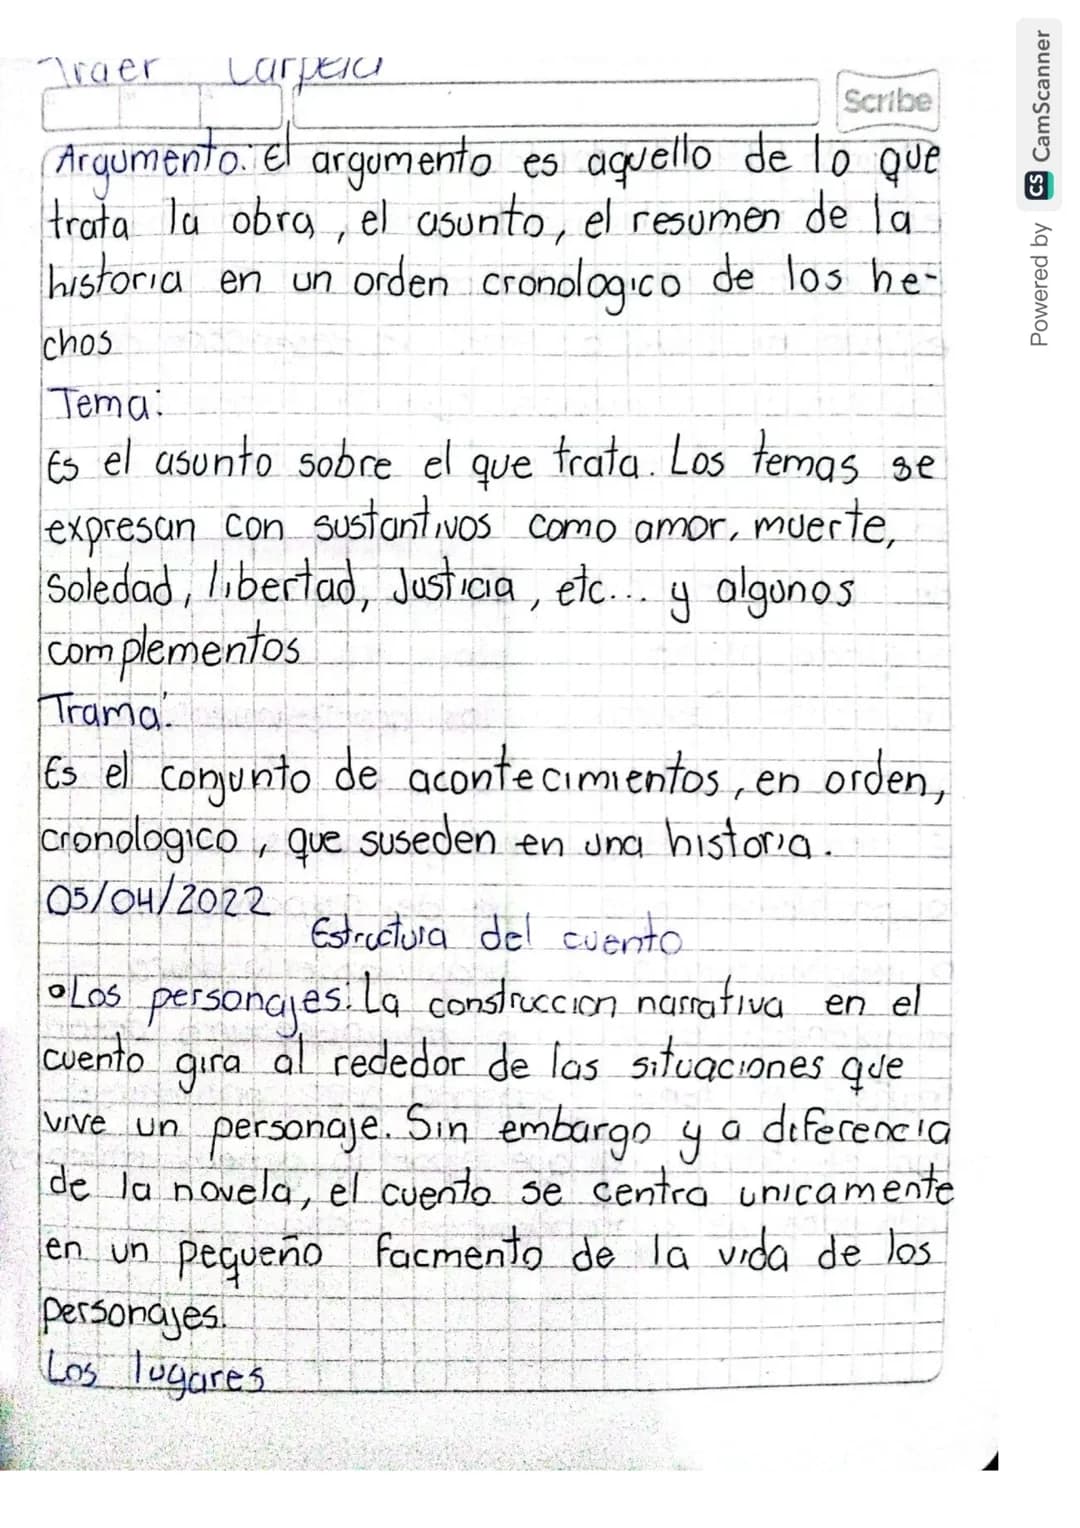 Traer Carpeta
Scribe
Argumento: El argumento es aquello de lo que
trata la obra, el asunto, el resumen de la
historia en un orden cronologico de los he-
chos
Tema:
Es el asunto sobre el que trata. Los temas se
expresan con sustantivos como amor, muerte,
Soledad, libertad, Justicia, etc... y algunos
complementos
Trama:
Es el conjunto de acontecimientos, en orden,
cronologico, que suseden en una historia.
05/04/2022
Estructura del cuento
•Los personajes: La construccion narrativa en el
cuento gira al rededor de las situaciones que
vive un personaje. Sin embargo y a diferencia
de la novela, el cuento se centra unicamente
en un pequeño facmento de la vida de los
personajes.
Los lugares
Powered by CS CamScanner